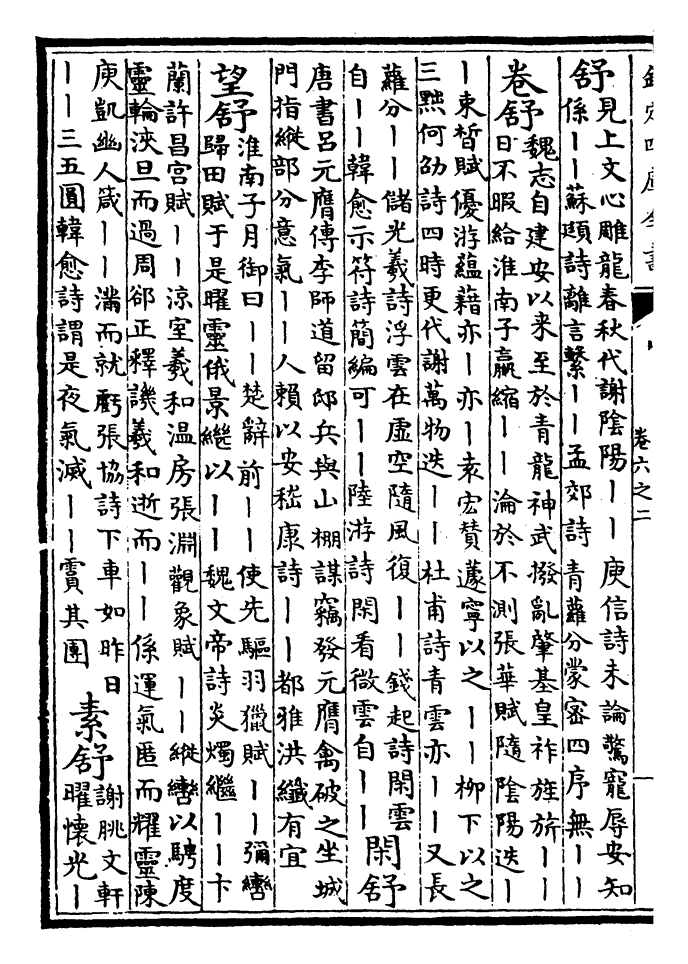 欽定四庫全書
卷六之二
舒
見上文心雕龍春秋代謝陰陽——庾信詩未論驚寵辱安知
係——蘇頲詩離言繫——孟郊詩青蘿分蒙密四序無——
卷舒
魏志自建安以来至於青龍神武撥亂肇基皇祚旌旂——
日不暇給淮南子嬴縮——淪於不測張華賦隨陰陽迭—
—束皙賦優游蘊藉亦—亦—袁宏賛蘧寧以之——柳下以之
三黜何劭詩四時更代謝萬物迭——杜甫詩青雲亦——又長
蘿分——儲光羲詩浮雲在虛空隨風復——錢起詩閑雲
自——韓愈示符詩簡編可——陸游詩閑看微雲自——
閑舒
唐書呂元膺傳李師道留邸兵與山棚謀竊發元膺禽破之坐城
門指縱部分意氣——人賴以安嵇康詩——都雅洪纖有宜
望舒
淮南子月御曰——楚辭前——使先驅羽獵賦——彌轡
歸田賦于是曜靈俄景繼以——魏文帝詩炎燭繼——卞
蘭許昌宫賦——涼室羲和温房張淵觀象賦——縱轡以騁度
靈輪浹旦而過周郤正釋譏羲和逝而——係運氣匿而耀靈陳
庾凱幽人箴——滿而就虧張協詩下車如昨日
——三五圓韓愈詩謂是夜氣滅——霣其團
素舒
謝朓文軒
曜懷光—